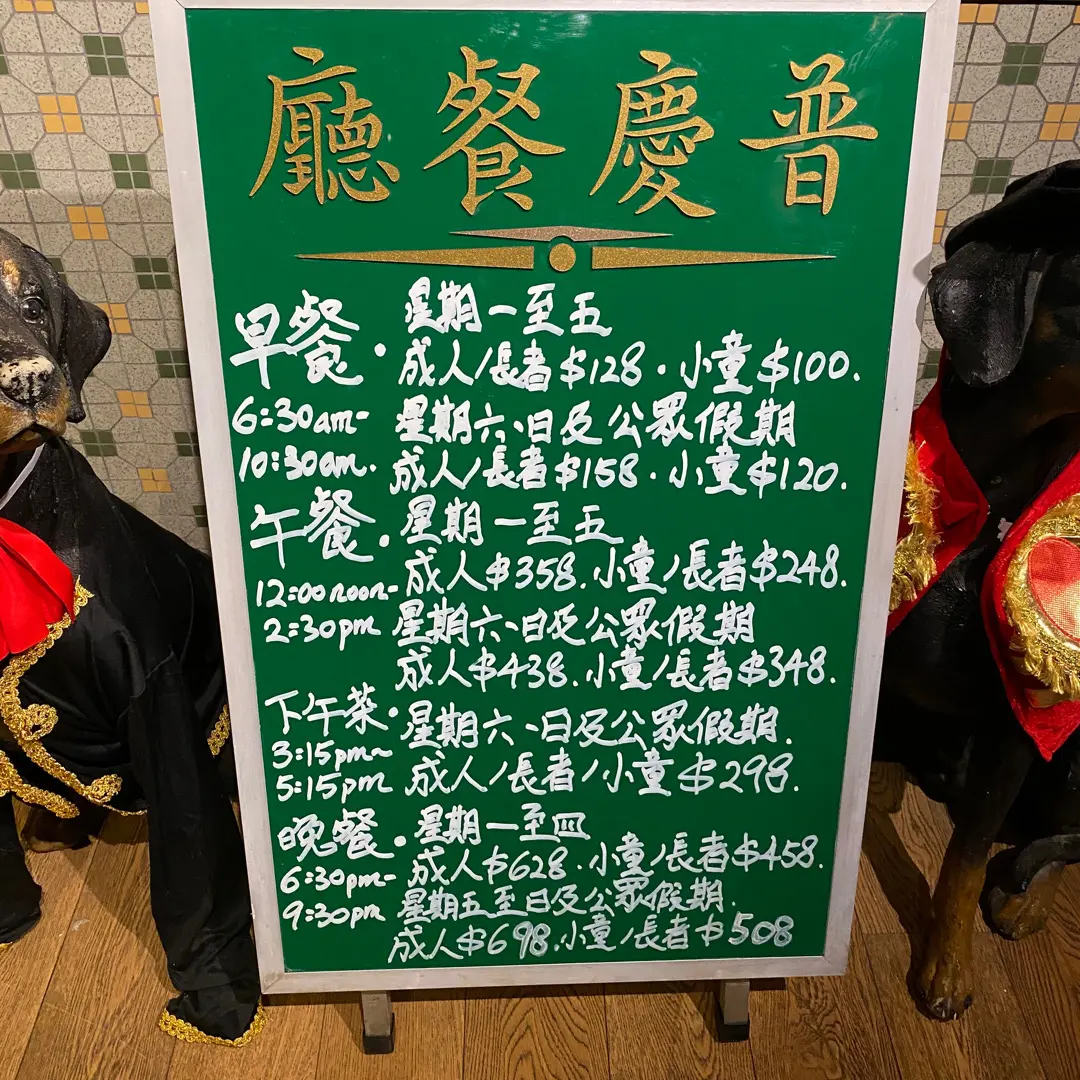 普慶餐廳
早餐.
6:30am-
10:30am.
星期一至五
成人/長者$128.小童$100.
星期六、日及公眾假期
成人/長者$158.小童$120.
午餐.
12:00noon-
2:30pm
星期一至五
成人$358.小童/長者$248.
星期六、日及公眾假期
成人$438.小童/長者$348.
下午茶.
3:15pm~
5:15pm
星期六、日及公眾假期.
成人/長者/小童$298.
晚餐.
6:30pm-
9:30pm
星期一至四
成人$628.小童/長者$458.
星期五至日及公眾假期.
成人$698.小童/長者$508